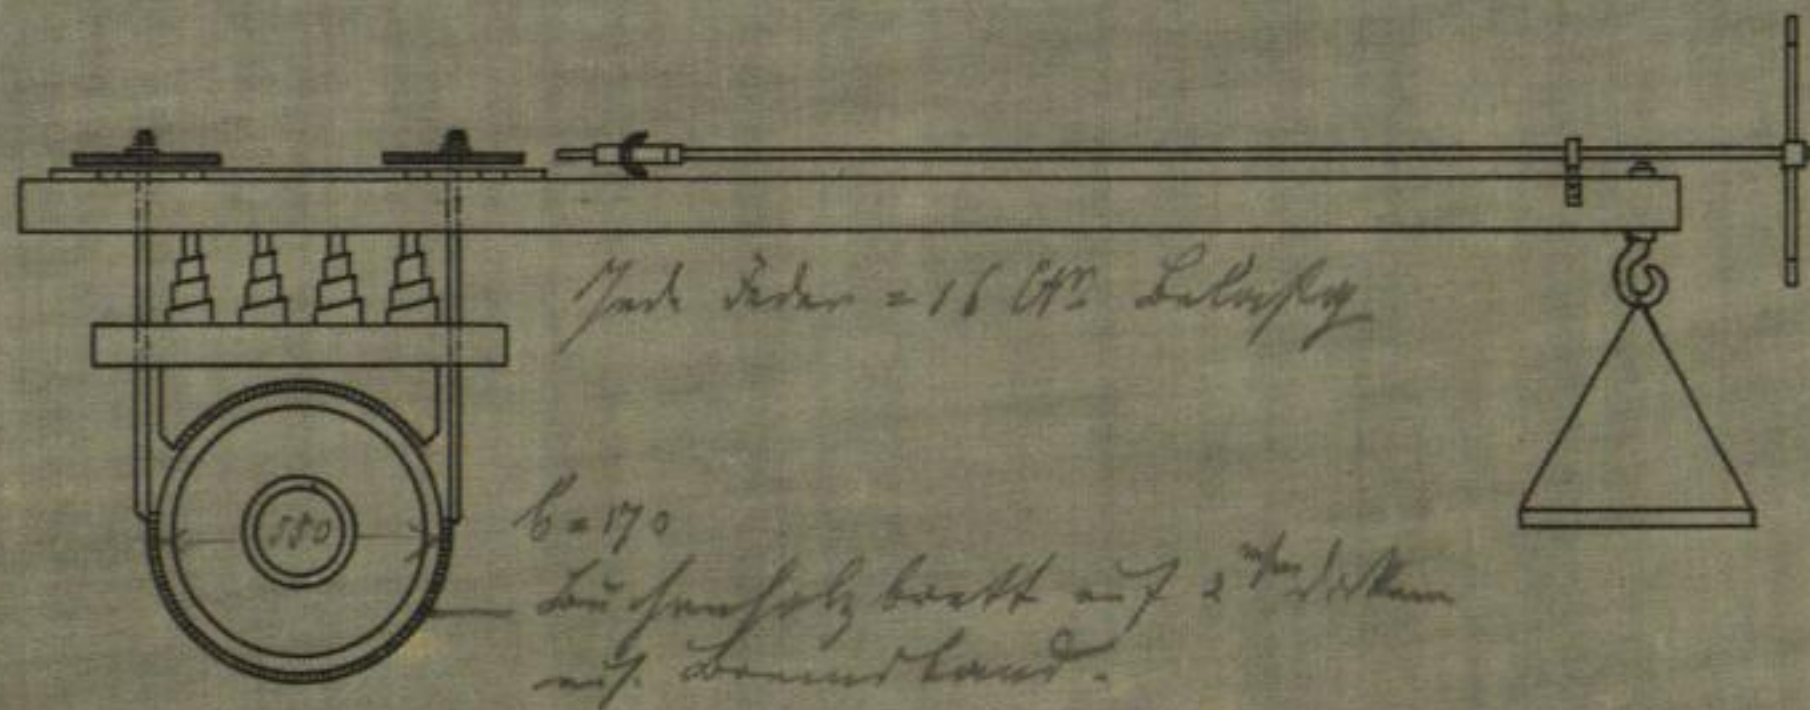 Jede Feder = 16 Ctr. Belastg
580
b = 170
Buchenholzbrett auf 2 m/m dickem
eis. Bremsband.